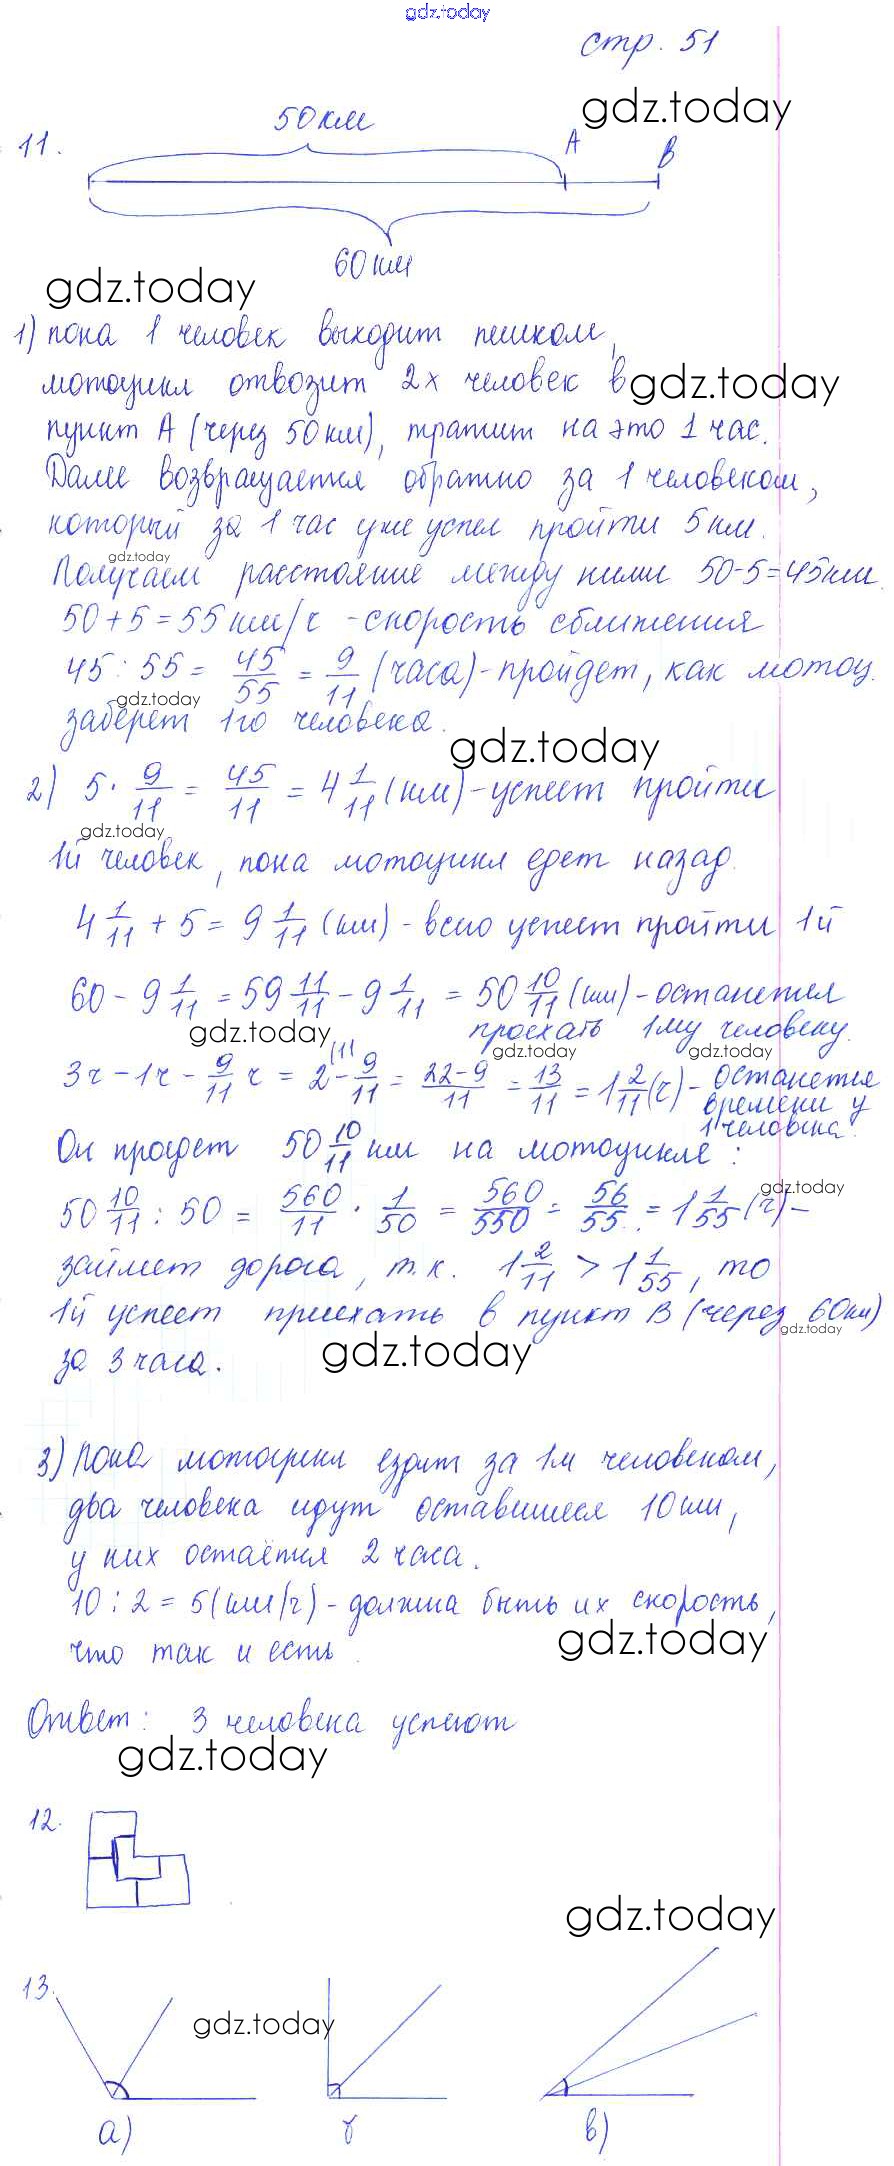 gdz.today
стр. 51
gdz.today
50км
11.
А
В
60км
gdz.today
1) пока 1 человек выходит пешком,
мотоцикл отвозит 2х человек в
gdz.today
пункт А (через 50км), тратит на это 1 час.
Далее возвращается обратно за 1 человеком,
который за 1 час уже успел пройти 5км.
gdz.today
Получаем расстояние между ними 50-5=45км.
50+5=55км/ч -скорость сближения
45:55= 45/55 = 9/11 (часа)-пройдет, как мотоц.
gdz.today
заберет 1го человека.
gdz.today
2) 5· 9/11 = 45/11 = 4 1/11 (км)-успеет пройти
gdz.today
1й человек, пока мотоцикл едет назад.
4 1/11 + 5 = 9 1/11 (км) - всего успеет пройти 1й
60 - 9 1/11 = 59 11/11 - 9 1/11 = 50 10/11 (км)-останется
проехать 1му человеку.
gdz.today
gdz.today
gdz.today
3ч-1ч- 9/11 ч = 2(11 - 9/11 = 22-9/11 = 13/11 = 1 2/11 (ч)- останется
времени у
1 человека.
Он проедет 50 10/11 км на мотоцикле:
gdz.today
50 10/11 : 50 = 560/11 · 1/50 = 560/550 = 56/55 = 1 1/55 (ч)-
займет дорога, т.к. 1 2/11 > 1 1/55, то
1й успеет приехать в пункт В (через 60км)
gdz.today
за 3 часа.
gdz.today
3) Пока мотоцикл ездит за 1м человеком,
два человека идут оставшиеся 10км,
у них остаётся 2 часа.
10:2=5(км/ч)- должна быть их скорость,
что так и есть.
gdz.today
Ответ: 3 человека успеют
gdz.today
12.
gdz.today
13.
gdz.today
а)
б
в)